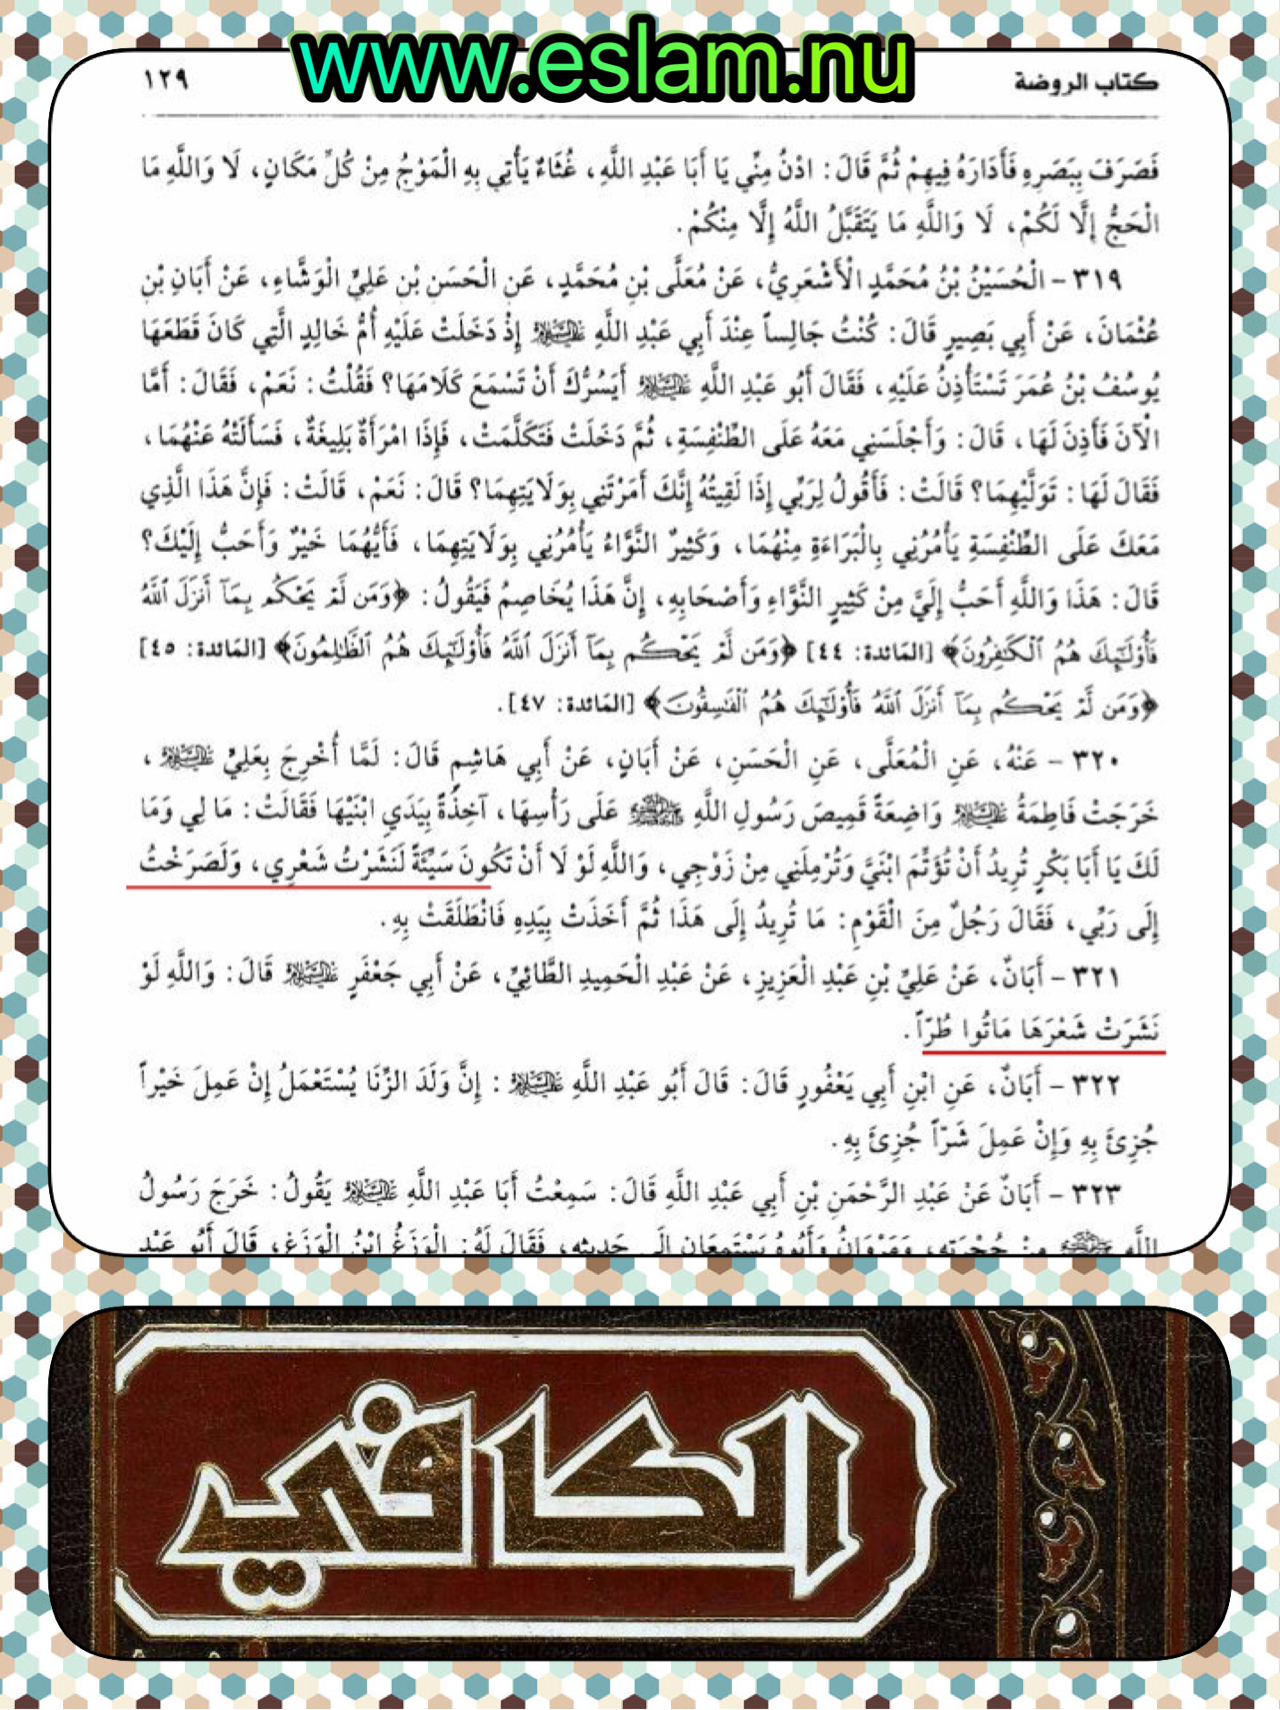 www.eslam.nu
كتاب الروضة ١٢٩
فَصَرَفَ بِبَصَرِهِ فَأَدَارَهُ فِيهِمْ ثُمَّ قَالَ: ادْنُ مِنِّي يَا أَبَا عَبْدِ اللَّهِ، غُثَاءٌ يَأْتِي بِهِ الْمَوْجُ مِنْ كُلِّ مَكَانٍ، لَا وَاللَّهِ مَا
الْحَجُّ إِلَّا لَكُمْ، لَا وَاللَّهِ مَا يَتَقَبَّلُ اللَّهُ إِلَّا مِنْكُمْ.
٣١٩ - الْحُسَيْنُ بْنُ مُحَمَّدٍ الْأَشْعَرِيُّ، عَنْ مُعَلَّى بْنِ مُحَمَّدٍ، عَنِ الْحَسَنِ بْنِ عَلِيٍّ الْوَشَّاءِ، عَنْ أَبَانِ بْنِ
عُثْمَانَ، عَنْ أَبِي بَصِيرٍ قَالَ: كُنْتُ جَالِساً عِنْدَ أَبِي عَبْدِ اللَّهِ عَلَيْهِ السَّلَامُ إِذْ دَخَلَتْ عَلَيْهِ أُمُّ خَالِدٍ الَّتِي كَانَ قَطَعَهَا
يُوسُفُ بْنُ عُمَرَ تَسْتَأْذِنُ عَلَيْهِ، فَقَالَ أَبُو عَبْدِ اللَّهِ عَلَيْهِ السَّلَامُ أَيَسُرُّكَ أَنْ تَسْمَعَ كَلَامَهَا؟ فَقُلْتُ: نَعَمْ، فَقَالَ: أَمَّا
الْآنَ فَأَذِنَ لَهَا، قَالَ: وَأَجْلَسَنِي مَعَهُ عَلَى الطِّنْفِسَةِ، ثُمَّ دَخَلَتْ فَتَكَلَّمَتْ، فَإِذَا امْرَأَةٌ بَلِيغَةٌ، فَسَأَلَتْهُ عَنْهُمَا،
فَقَالَ لَهَا: تَوَلَّيْهِمَا؟ قَالَتْ: فَأَقُولُ لِرَبِّي إِذَا لَقِيتُهُ إِنَّكَ أَمَرْتَنِي بِوَلَايَتِهِمَا؟ قَالَ: نَعَمْ، قَالَتْ: فَإِنَّ هَذَا الَّذِي
مَعَكَ عَلَى الطِّنْفِسَةِ يَأْمُرُنِي بِالْبَرَاءَةِ مِنْهُمَا، وَكَثِيرٌ النَّوَّاءُ يَأْمُرُنِي بِوَلَايَتِهِمَا، فَأَيُّهُمَا خَيْرٌ وَأَحَبُّ إِلَيْكَ؟
قَالَ: هَذَا وَاللَّهِ أَحَبُّ إِلَيَّ مِنْ كَثِيرٍ النَّوَّاءِ وَأَصْحَابِهِ، إِنَّ هَذَا يُخَاصِمُ فَيَقُولُ: ﴿وَمَن لَّمْ يَحْكُم بِمَآ أَنزَلَ ٱللَّهُ
فَأُوْلَٰٓئِكَ هُمُ ٱلْكَٰفِرُونَ﴾ [المَائدة: ٤٤] ﴿وَمَن لَّمْ يَحْكُم بِمَآ أَنزَلَ ٱللَّهُ فَأُوْلَٰٓئِكَ هُمُ ٱلظَّٰلِمُونَ﴾ [المَائدة: ٤٥]
﴿وَمَن لَّمْ يَحْكُم بِمَآ أَنزَلَ ٱللَّهُ فَأُوْلَٰٓئِكَ هُمُ ٱلْفَٰسِقُونَ﴾ [المَائدة: ٤٧].
٣٢٠ - عَنْهُ، عَنِ الْمُعَلَّى، عَنِ الْحَسَنِ، عَنْ أَبَانٍ، عَنْ أَبِي هَاشِمٍ قَالَ: لَمَّا أُخْرِجَ بِعَلِيٍّ عَلَيْهِ السَّلَامُ،
خَرَجَتْ فَاطِمَةُ عَلَيْهَا السَّلَامُ وَاضِعَةً قَمِيصَ رَسُولِ اللَّهِ ﷺ عَلَى رَأْسِهَا، آخِذَةً بِيَدَيِ ابْنَيْهَا فَقَالَتْ: مَا لِي وَمَا
لَكَ يَا أَبَا بَكْرٍ تُرِيدُ أَنْ تُؤَتِّمَ ابْنَيَّ وَتُرْمِلَنِي مِنْ زَوْجِي، وَاللَّهِ لَوْ لَا أَنْ تَكُونَ سَيِّئَةً لَنَشَرْتُ شَعْرِي، وَلَصَرَخْتُ
إِلَى رَبِّي، فَقَالَ رَجُلٌ مِنَ الْقَوْمِ: مَا تُرِيدُ إِلَى هَذَا ثُمَّ أَخَذَتْ بِيَدِهِ فَانْطَلَقَتْ بِهِ.
٣٢١ - أَبَانٌ، عَنْ عَلِيِّ بْنِ عَبْدِ الْعَزِيزِ، عَنْ عَبْدِ الْحَمِيدِ الطَّائِيِّ، عَنْ أَبِي جَعْفَرٍ عَلَيْهِ السَّلَامُ قَالَ: وَاللَّهِ لَوْ
نَشَرَتْ شَعْرَهَا مَاتُوا طُرّاً.
٣٢٢ - أَبَانٌ، عَنِ ابْنِ أَبِي يَعْفُورٍ قَالَ: قَالَ أَبُو عَبْدِ اللَّهِ عَلَيْهِ السَّلَامُ: إِنَّ وَلَدَ الزِّنَا يُسْتَعْمَلُ إِنْ عَمِلَ خَيْراً
جُزِئَ بِهِ وَإِنْ عَمِلَ شَرّاً جُزِئَ بِهِ.
٣٢٣ - أَبَانٌ عَنْ عَبْدِ الرَّحْمَنِ بْنِ أَبِي عَبْدِ اللَّهِ قَالَ: سَمِعْتُ أَبَا عَبْدِ اللَّهِ عَلَيْهِ السَّلَامُ يَقُولُ: خَرَجَ رَسُولُ
اللَّهِ ﷺ مِنْ حُجْرَتِهِ، وَمَرْوَانُ وَأَبُوهُ يَسْتَمِعَانِ إِلَى حَدِيثِهِ، فَقَالَ لَهُ: الْوَزَغُ ابْنُ الْوَزَغِ، قَالَ أَبُو عَبْدِ
الكافي